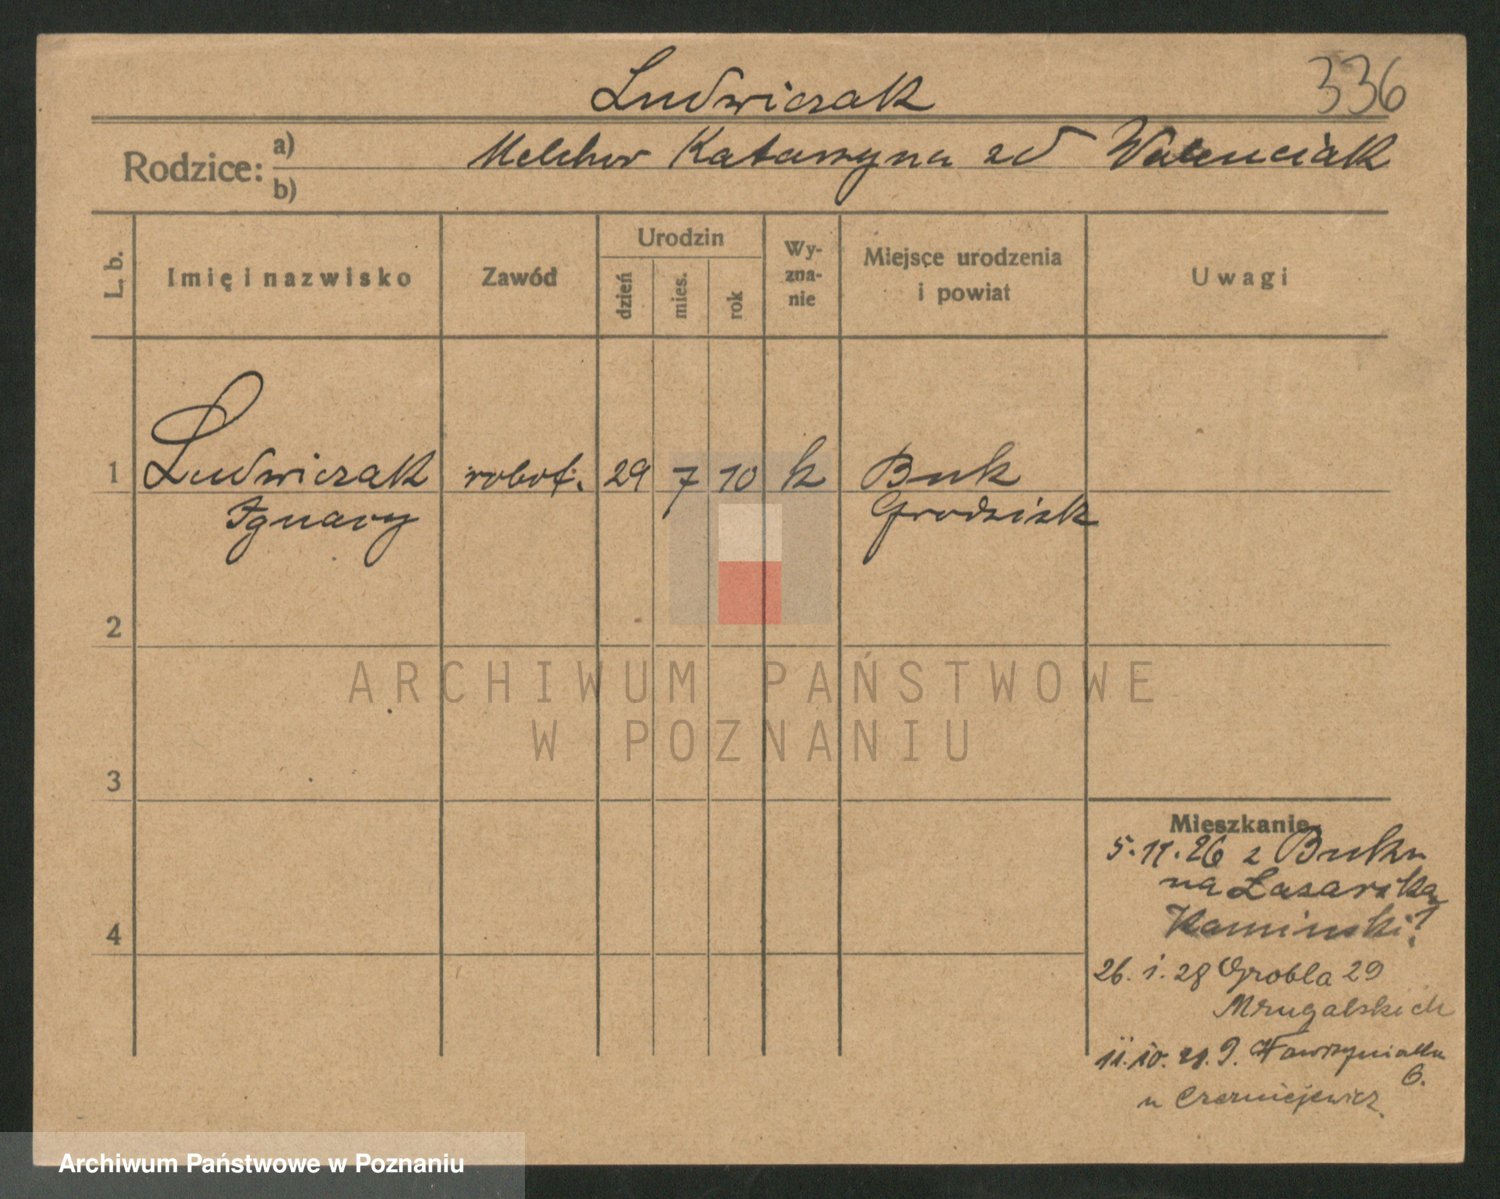 Ludwiczak
336
Rodzice: a) b)
Melchor Katarzyna zd Walenciak
L. b.
Imię i nazwisko
Zawód
Urodzin
dzień
mies.
rok
Wy-
zna-
nie
Miejsce urodzenia
i powiat
Uwagi
1 Ludwiczak robot. 29 7 10 k Buk
Ignacy Grodzisk
2
ARCHIWUM PAŃSTWOWE
W POZNANIU
3
Mieszkanie
5.11.26 z Buku
na Łazarska
Kaminski?
4
26. 1. 28 Grobla 29
Mrugalskich
11.10.
6.
u Czerniejewicz.
Archiwum Państwowe w Poznaniu